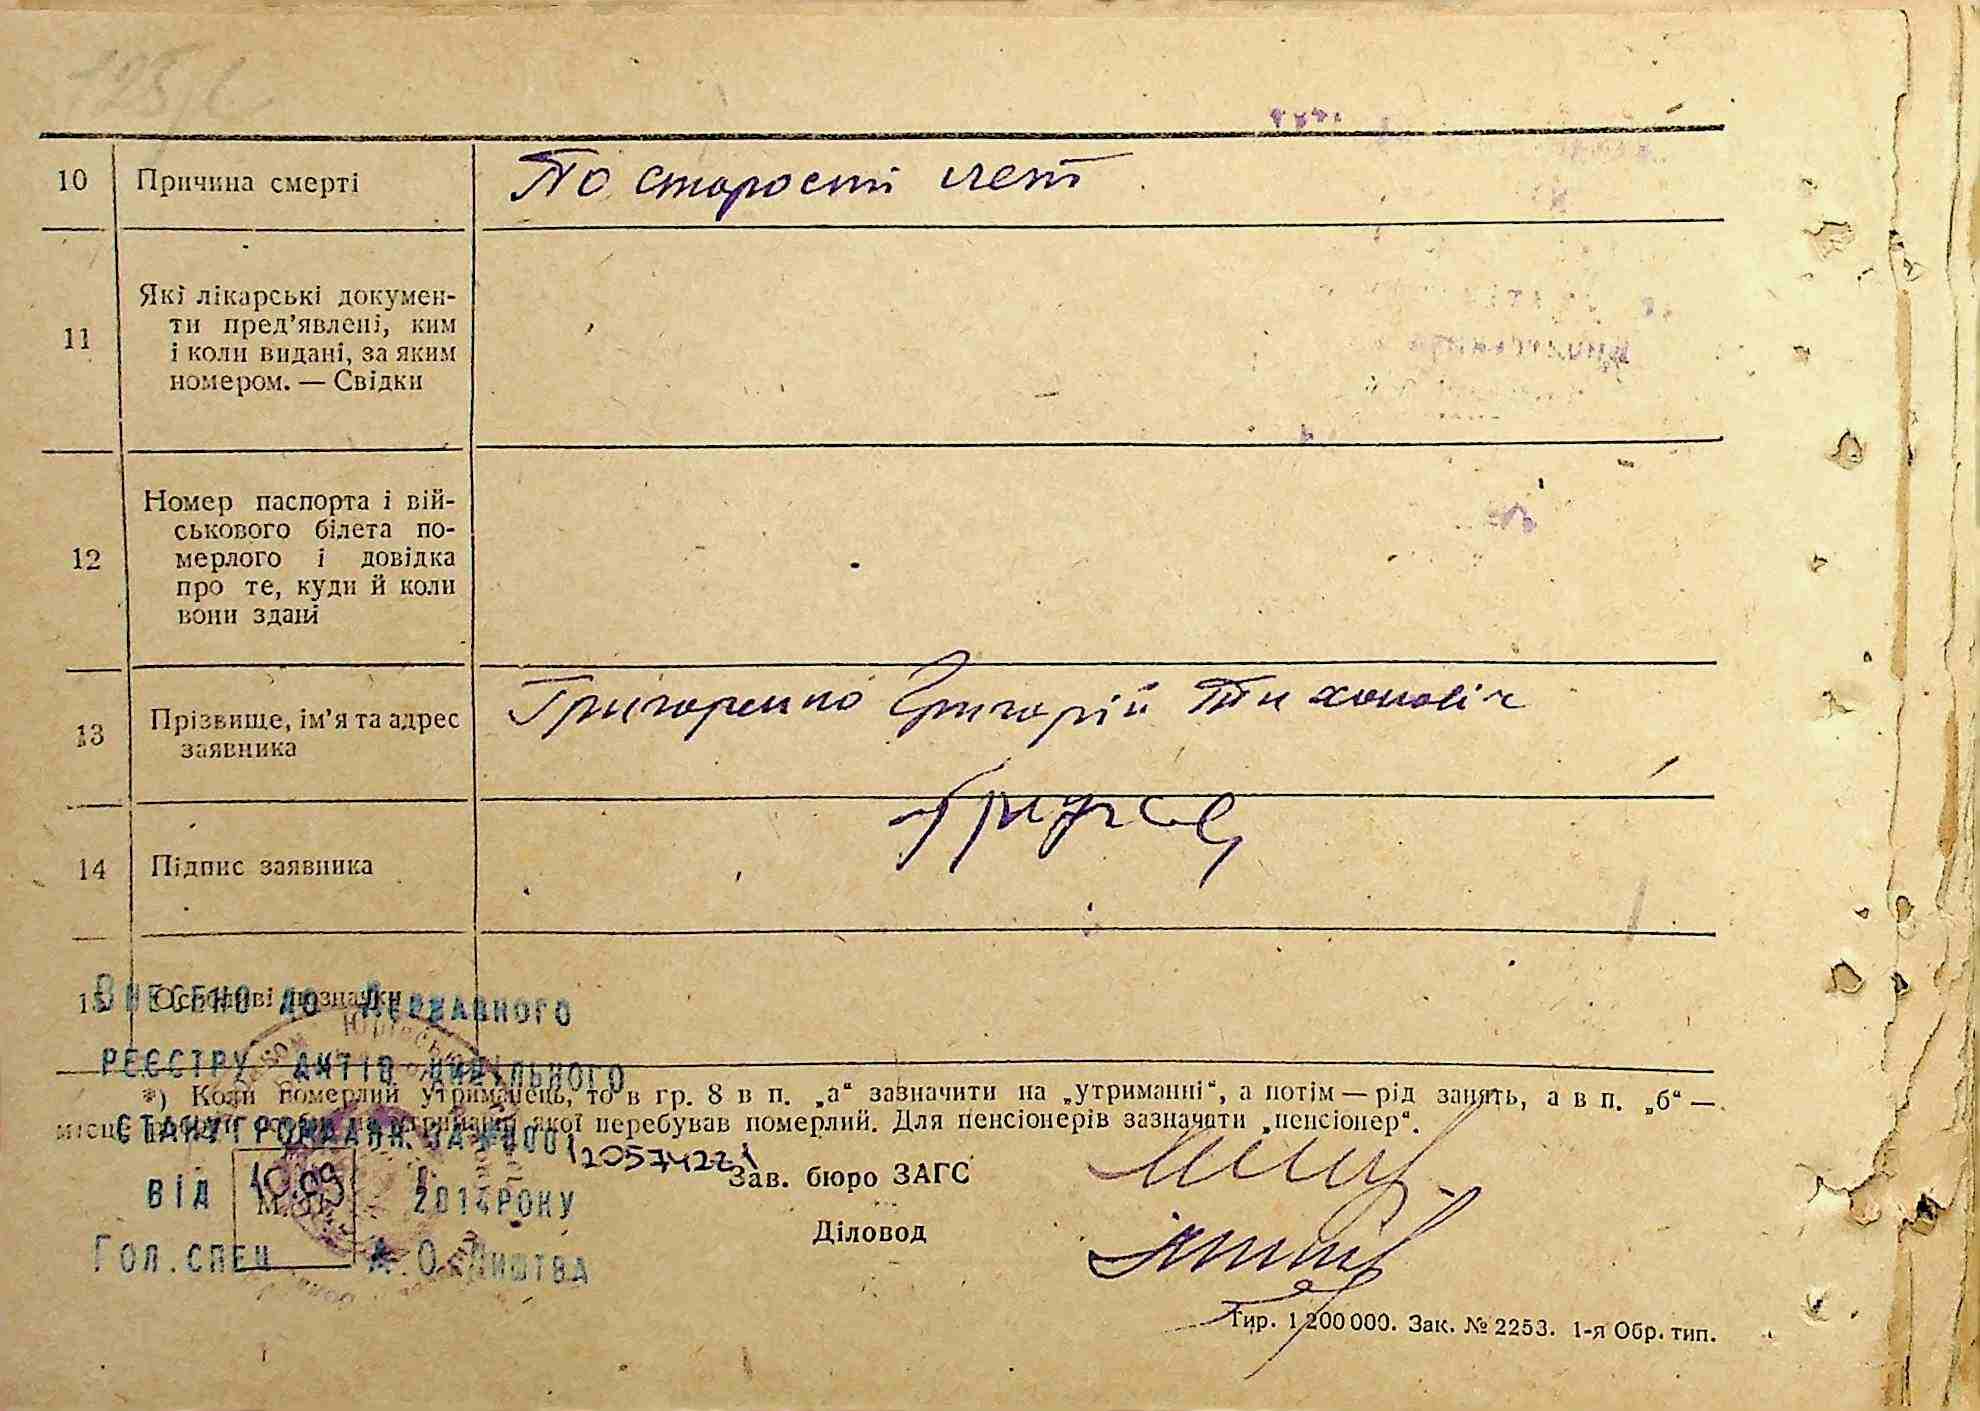 10 Причина смерті По старості лет
11 Які лікарські докумен-
ти пред’явлені, ким
і коли видані, за яким
номером. — Свідки
12 Номер паспорта і вій-
ськового білета по-
мерлого і довідка
про те, куди й коли
вони здані
13 Прізвище, ім’я та адрес
заявника
Григоренко Григорій Тихоновіч
14 Підпис заявника
15 Особливі позначки
Внесено до Державного
реєстру актів цивільного
*) Коли померлий утриманець, то в гр. 8 в п. „а“ зазначити на „утриманні“, а потім — рід занять, а в п. „б“ —
якої перебував померлий. Для пенсіонерів зазначити „пенсіонер“.
стану громадян за №0001
20574227
Зав. бюро ЗАГС
від 10.09 2014 року
М. П.
Діловод
Гол. спец А.О. Лиштва
Тир. 1 200 000. Зак. № 2253. 1-я Обр. тип.